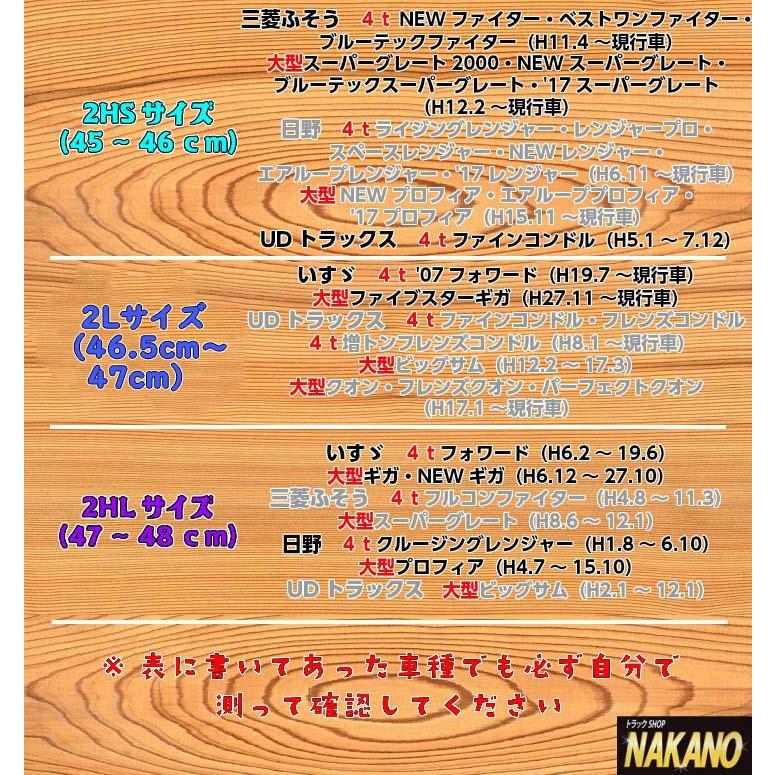 三菱ふそう 4t NEWファイター・ベストワンファイター・
ブルーテックファイター（H11.4～現行車）
大型スーパーグレート2000・NEWスーパーグレート・
ブルーテックスーパーグレート・'17スーパーグレート
（H12.2～現行車）
2HSサイズ
（45～46cm）
日野 4tライジングレンジャー・レンジャープロ・
スペースレンジャー・NEWレンジャー・
エアループレンジャー・'17レンジャー（H6.11～現行車）
大型NEWプロフィア・エアループプロフィア・
'17プロフィア（H15.11～現行車）
UDトラックス 4tファインコンドル（H5.1～7.12）
2Lサイズ
（46.5cm～
47cm）
いすゞ 4t '07フォワード（H19.7～現行車）
大型ファイブスターギガ（H27.11～現行車）
UDトラックス 4tファインコンドル・フレンズコンドル
4t増トンフレンズコンドル（H8.1～現行車）
大型ビッグサム（H12.2～17.3）
大型クオン・フレンズクオン・パーフェクトクオン
（H17.1～現行車）
2HLサイズ
（47～48cm）
いすゞ 4tフォワード（H6.2～19.6）
大型ギガ・NEWギガ（H6.12～27.10）
三菱ふそう 4tフルコンファイター（H4.8～11.3）
大型スーパーグレート（H8.6～12.1）
日野 4tクルージングレンジャー（H1.8～6.10）
大型プロフィア（H4.7～15.10）
UDトラックス 大型ビッグサム（H2.1～12.1）
※表に書いてあった車種でも必ず自分で
測って確認してください
トラックSHOP
NAKANO